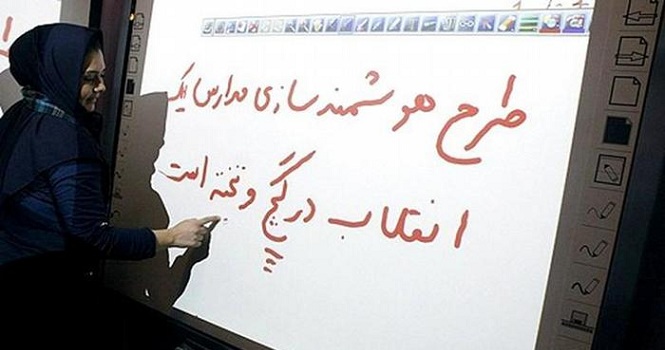 طرح هوشمند سازی مدارس یک
انقلاب در گچ و تخته است